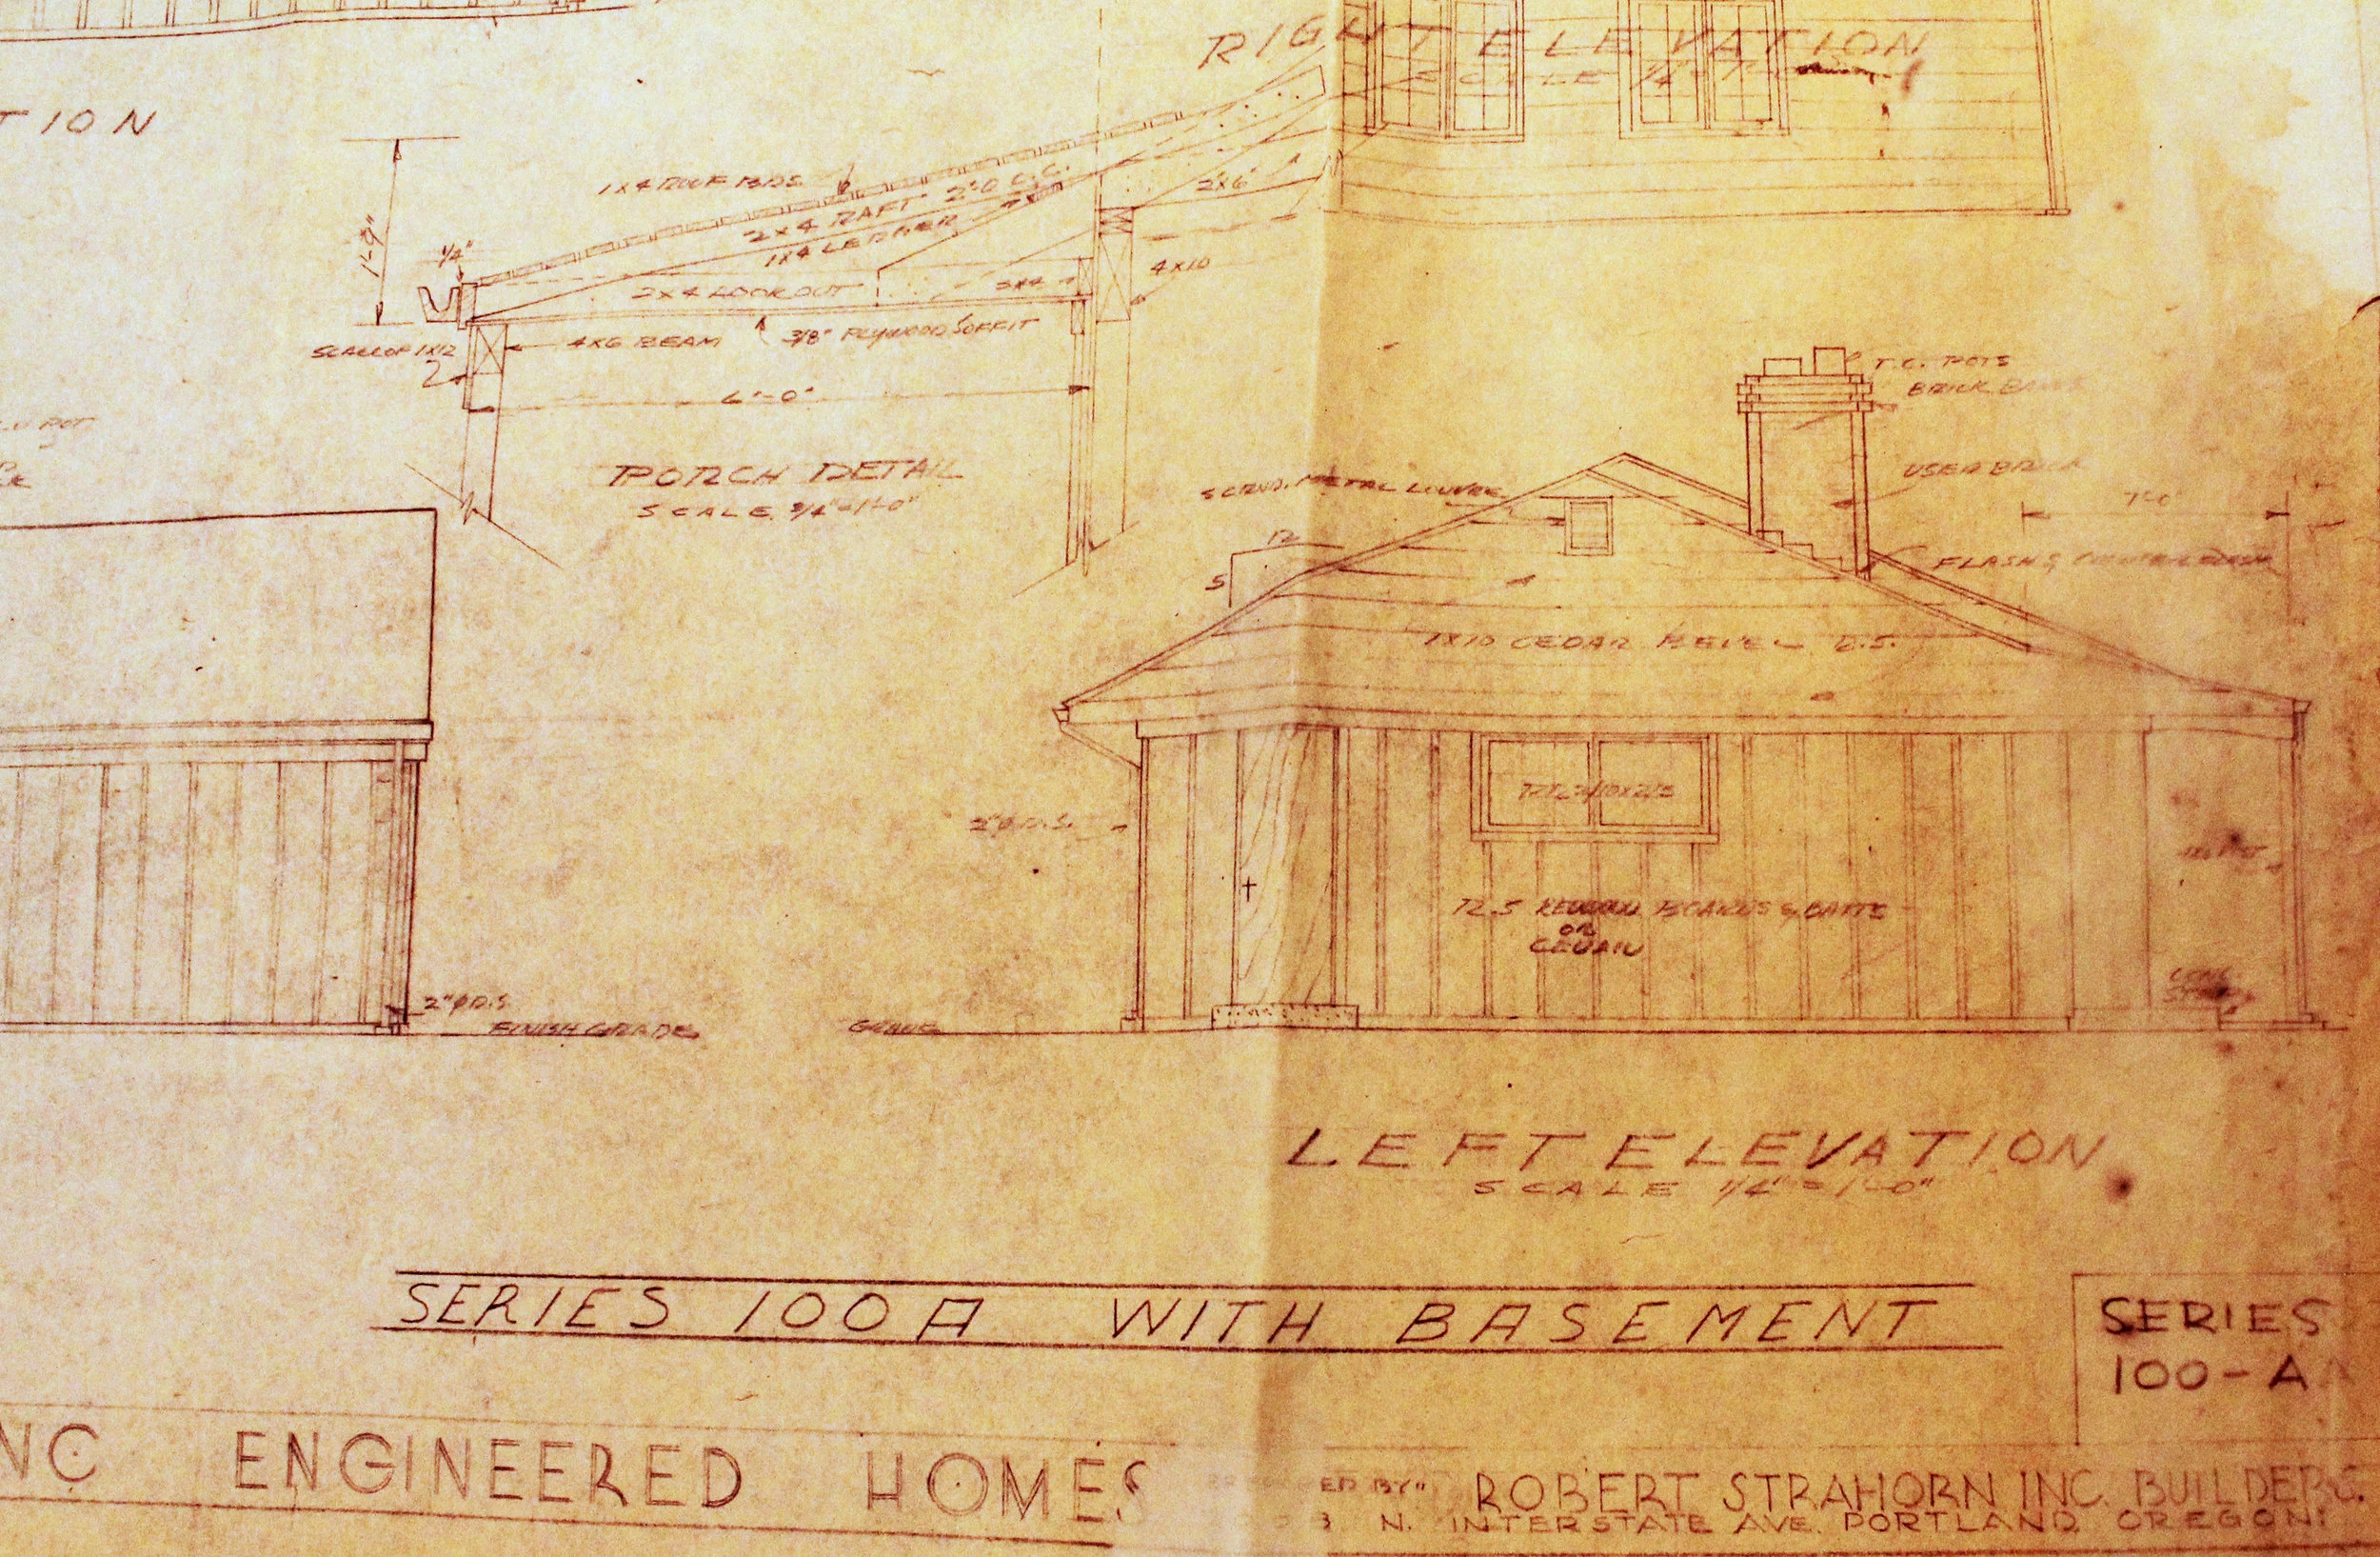 RIGHT ELEVATION
SCALE 1/4"
TION
1X4 ROOF BDS.
2X4 RAFT. 2'-0" O.C.
1X4 LEDGER
2X6
1'-9"
1/4"
4X10
2X4 LOOKOUT
SCALLOP 1X12
4X6 BEAM
3/8" PLYWOOD SOFFIT
6'-0"
PORCH DETAIL
SCALE 3/4"=1'-0"
POT
T.C. POTS
BRICK
USED BRICK
SCRND. METAL LOUVRE
12
5
FLASH &
1X10 CEDAR BEVEL
2"ø D.S.
R.S. REDWOOD BOARDS & BATTS
OR
CEDAR
CONC.
2"ø D.S.
FINISH GRADE
GRADE
LEFT ELEVATION
SCALE 1/4"=1'-0"
SERIES 100A WITH BASEMENT
SERIES
100-A
NC ENGINEERED HOMES
ED BY"
ROBERT STRAHORN INC. BUILDERS.
N. INTERSTATE AVE. PORTLAND, OREGON.